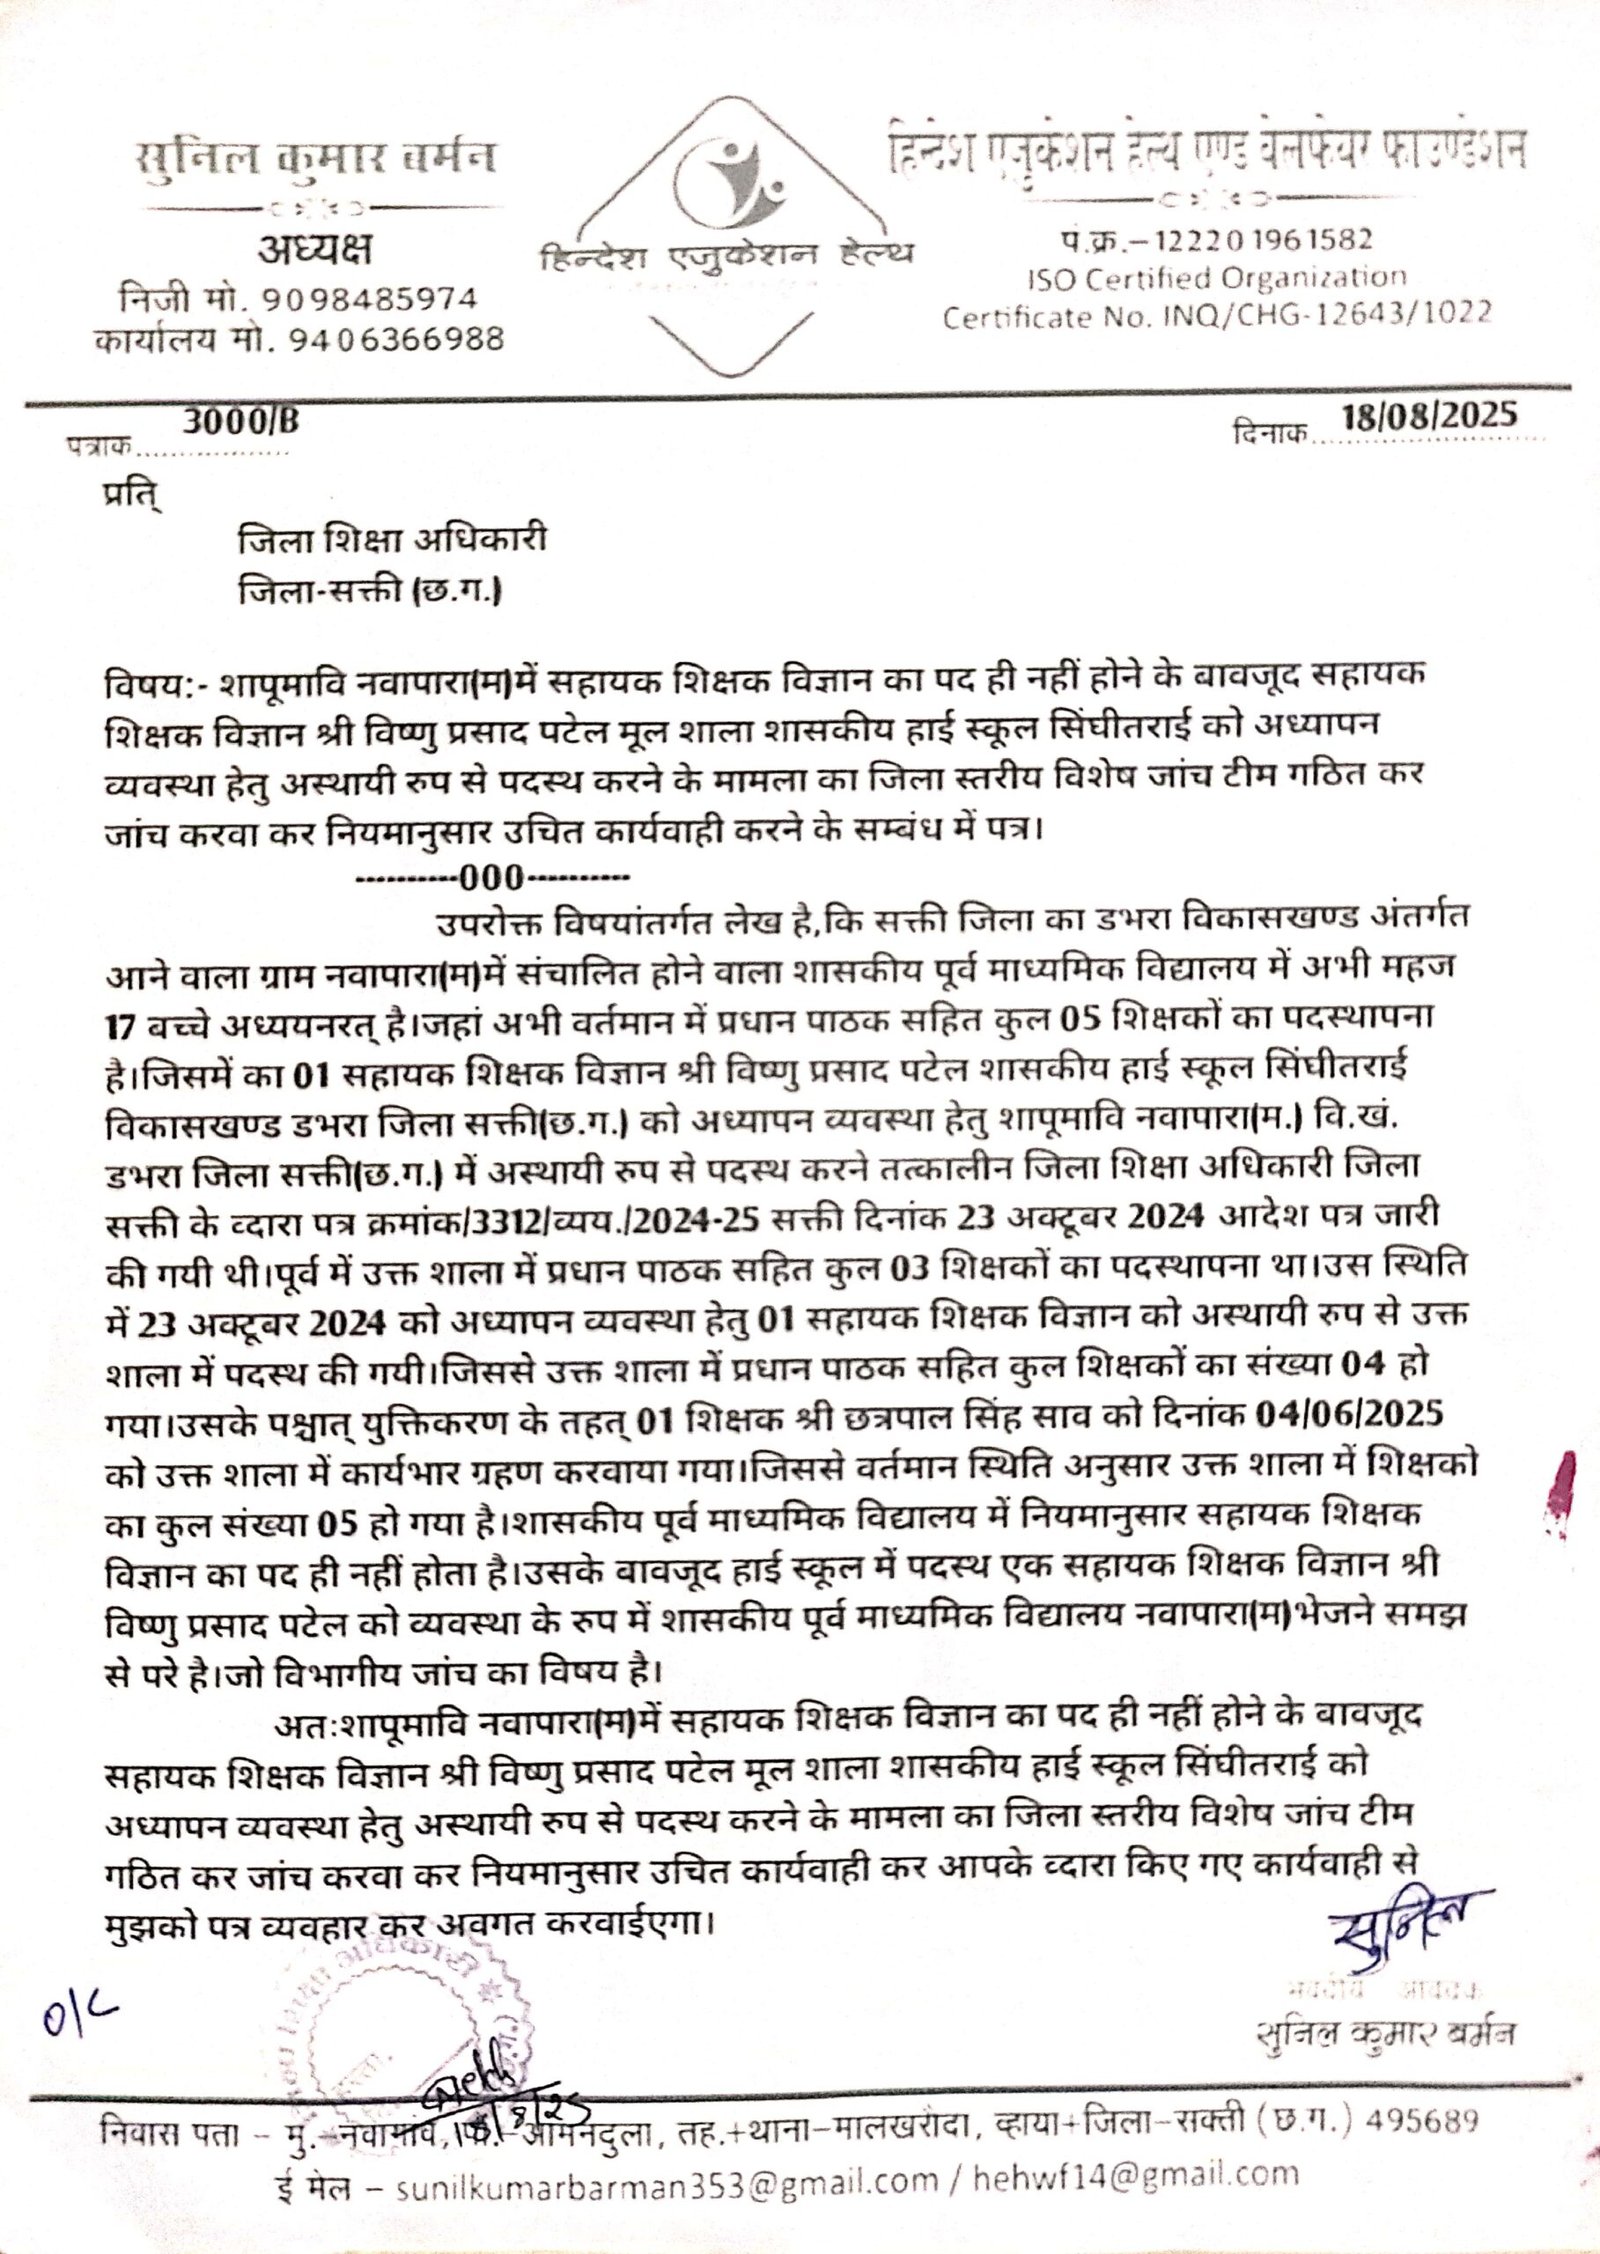 सुनिल कुमार बर्मन
अध्यक्ष
निजी मो. 9098485974
कार्यालय मो. 9406366988
हिन्देश एजुकेशन हेल्थ
हिन्देश एजुकेशन हेल्थ एण्ड वेलफेयर फाउण्डेशन
पं.क्र.–122201961582
ISO Certified Organization
Certificate No. INQ/CHG-12643/1022
पत्राक.................. 3000/B
दिनाक.................. 18/08/2025
प्रति्
जिला शिक्षा अधिकारी
जिला-सक्ती (छ.ग.)
विषय:- शापूमावि नवापारा(म)में सहायक शिक्षक विज्ञान का पद ही नहीं होने के बावजूद सहायक
शिक्षक विज्ञान श्री विष्णु प्रसाद पटेल मूल शाला शासकीय हाई स्कूल सिंघीतराई को अध्यापन
व्यवस्था हेतु अस्थायी रुप से पदस्थ करने के मामला का जिला स्तरीय विशेष जांच टीम गठित कर
जांच करवा कर नियमानुसार उचित कार्यवाही करने के सम्बंध में पत्र।
----------000----------
उपरोक्त विषयांतर्गत लेख है,कि सक्ती जिला का डभरा विकासखण्ड अंतर्गत
आने वाला ग्राम नवापारा(म)में संचालित होने वाला शासकीय पूर्व माध्यमिक विद्यालय में अभी महज
17 बच्चे अध्ययनरत् है।जहां अभी वर्तमान में प्रधान पाठक सहित कुल 05 शिक्षकों का पदस्थापना
है।जिसमें का 01 सहायक शिक्षक विज्ञान श्री विष्णु प्रसाद पटेल शासकीय हाई स्कूल सिंघीतराई
विकासखण्ड डभरा जिला सक्ती(छ.ग.) को अध्यापन व्यवस्था हेतु शापूमावि नवापारा(म.) वि.खं.
डभरा जिला सक्ती(छ.ग.) में अस्थायी रुप से पदस्थ करने तत्कालीन जिला शिक्षा अधिकारी जिला
सक्ती के व्दारा पत्र क्रमांक/3312/व्यय./2024-25 सक्ती दिनांक 23 अक्टूबर 2024 आदेश पत्र जारी
की गयी थी।पूर्व में उक्त शाला में प्रधान पाठक सहित कुल 03 शिक्षकों का पदस्थापना था।उस स्थिति
में 23 अक्टूबर 2024 को अध्यापन व्यवस्था हेतु 01 सहायक शिक्षक विज्ञान को अस्थायी रुप से उक्त
शाला में पदस्थ की गयी।जिससे उक्त शाला में प्रधान पाठक सहित कुल शिक्षकों का संख्या 04 हो
गया।उसके पश्चात् युक्तिकरण के तहत् 01 शिक्षक श्री छत्रपाल सिंह साव को दिनांक 04/06/2025
को उक्त शाला में कार्यभार ग्रहण करवाया गया।जिससे वर्तमान स्थिति अनुसार उक्त शाला में शिक्षको
का कुल संख्या 05 हो गया है।शासकीय पूर्व माध्यमिक विद्यालय में नियमानुसार सहायक शिक्षक
विज्ञान का पद ही नहीं होता है।उसके बावजूद हाई स्कूल में पदस्थ एक सहायक शिक्षक विज्ञान श्री
विष्णु प्रसाद पटेल को व्यवस्था के रुप में शासकीय पूर्व माध्यमिक विद्यालय नवापारा(म)भेजने समझ
से परे है।जो विभागीय जांच का विषय है।
अतःशापूमावि नवापारा(म)में सहायक शिक्षक विज्ञान का पद ही नहीं होने के बावजूद
सहायक शिक्षक विज्ञान श्री विष्णु प्रसाद पटेल मूल शाला शासकीय हाई स्कूल सिंघीतराई को
अध्यापन व्यवस्था हेतु अस्थायी रुप से पदस्थ करने के मामला का जिला स्तरीय विशेष जांच टीम
गठित कर जांच करवा कर नियमानुसार उचित कार्यवाही कर आपके व्दारा किए गए कार्यवाही से
मुझको पत्र व्यवहार कर अवगत करवाईएगा।
सुनिल
भवदीय आवदक
सुनिल कुमार बर्मन
O/C
शिक्षा अधिकारी
18/8/25
निवास पता – मु.–नवागांव, पो.–आमनदुला, तह.+थाना–मालखरौदा, व्हाया+जिला–सक्ती (छ.ग.) 495689
ई मेल – sunilkumarbarman353@gmail.com / hehwf14@gmail.com